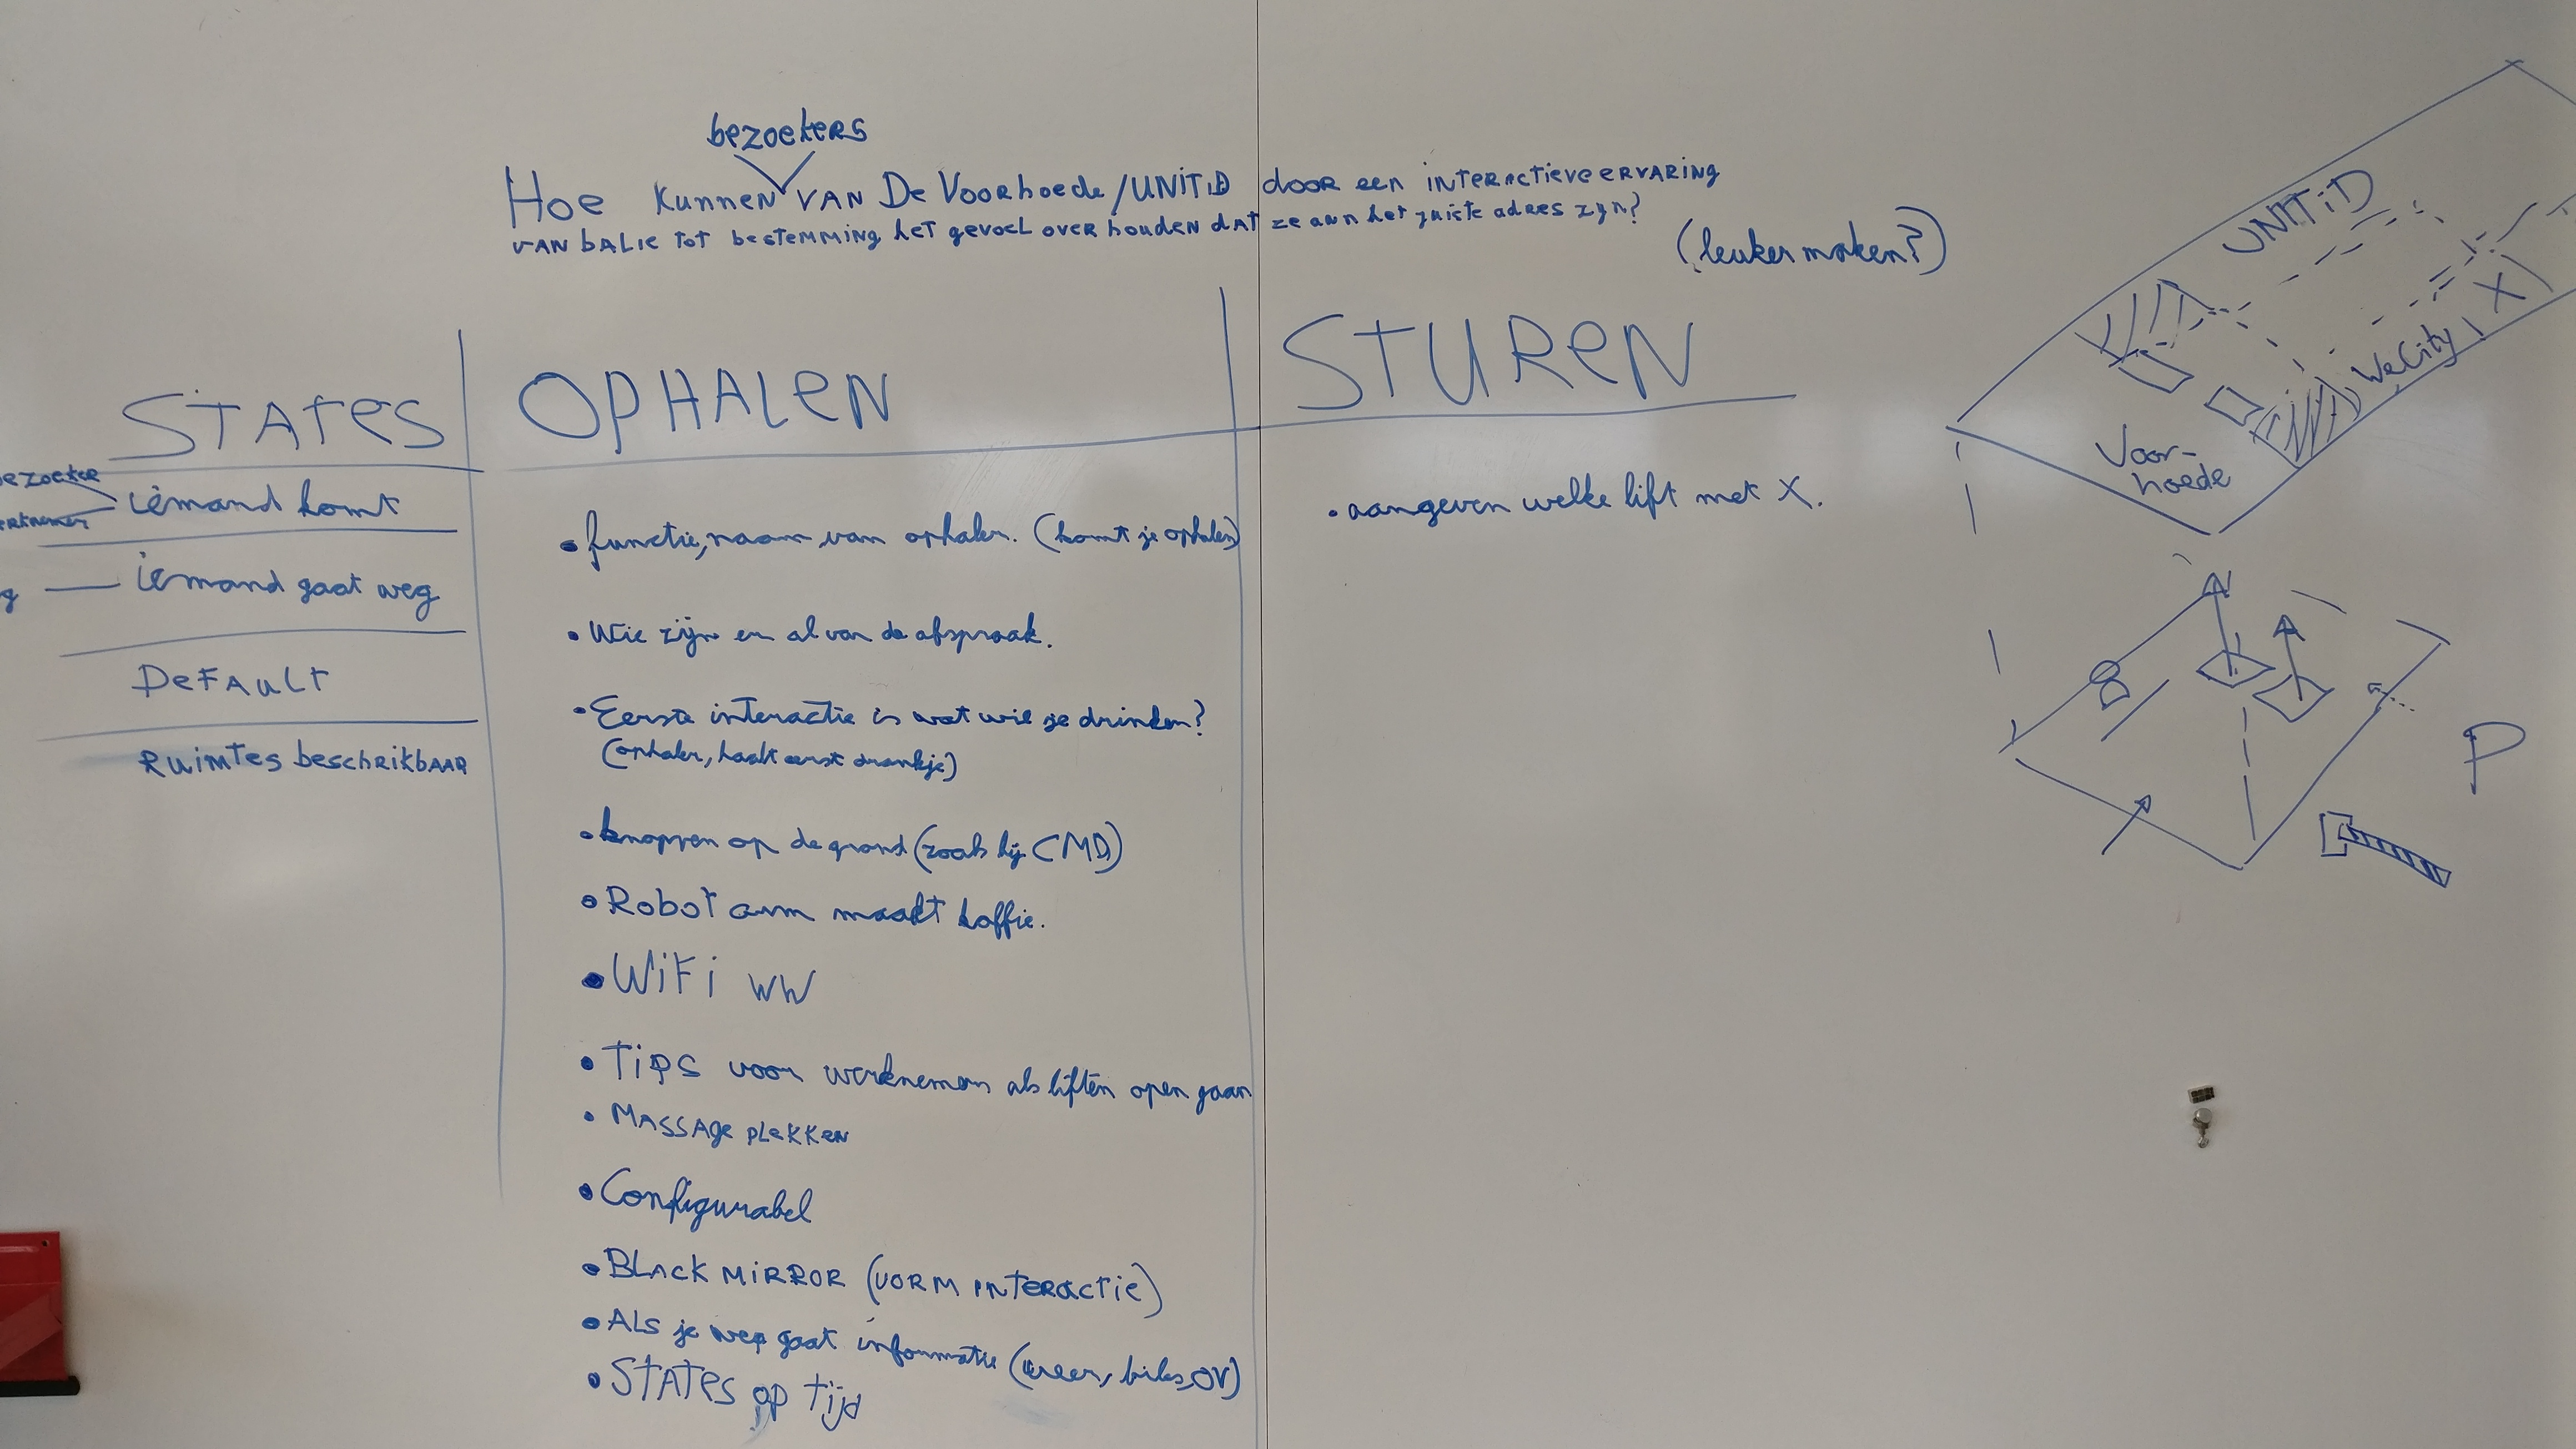 bezoekers
Hoe kunnen van De Voorhoede/UNITiD door een interactieve ervaring
van balie tot bestemming het gevoel over houden dat ze aan het juiste adres zijn?
(leuker maken?)
STATES
OPHALEN
STUREN
bezoeker
iemand komt
iemand gaat weg
Default
Ruimtes beschrikbaar
• functie, naam van ophaler. (komt je ophalen)
• Wie zijn er al van de afspraak.
• Eerste interactie is wat wil je drinken?
(ophaler, haalt eerst drankje)
• knoppen op de grond (zoals bij CMD)
• Robot arm maakt koffie.
• WiFi WW
• Tips voor werknemers als liften open gaan
• Massage plekken
• Configurabel
• Black mirror (vorm interactie)
• Als je weg gaat informatie (weer, OV)
• States op tijd
• aangeven welke lift met X.
UNITiD
WeCity
X
Voor-
hoede
P